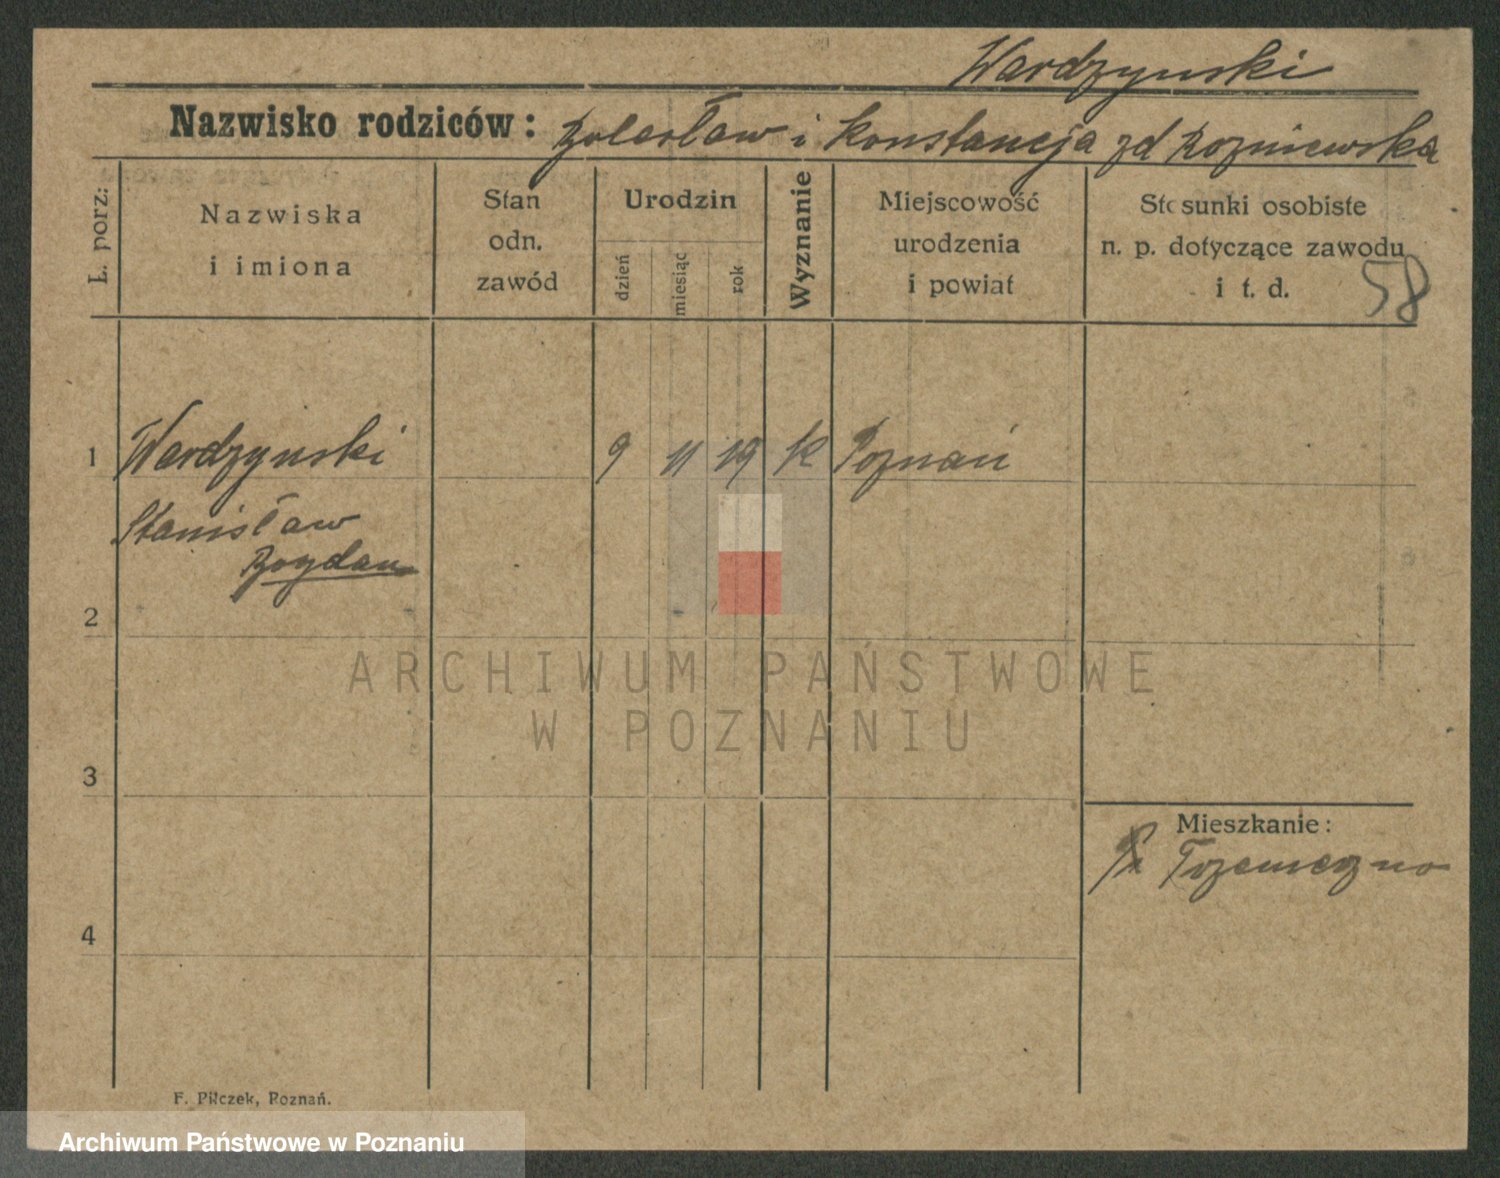 Wardzynski
Nazwisko rodziców: Bolesław i Konstancja zd Rozniewska
L. porz:
Nazwiska
i imiona
Stan
odn.
zawód
Urodzin
dzień
miesiąc
rok
Wyznanie
Miejscowość
urodzenia
i powiat
Stosunki osobiste
n. p. dotyczące zawodu
i t. d.
58
1 Wardzynski 9 11 19 K Poznań
Stanisław
Bogdan
2
ARCHIWUM PAŃSTWOWE
W POZNANIU
3
Mieszkanie:
Trzemeszno
4
F. Pilczek, Poznań.
Archiwum Państwowe w Poznaniu